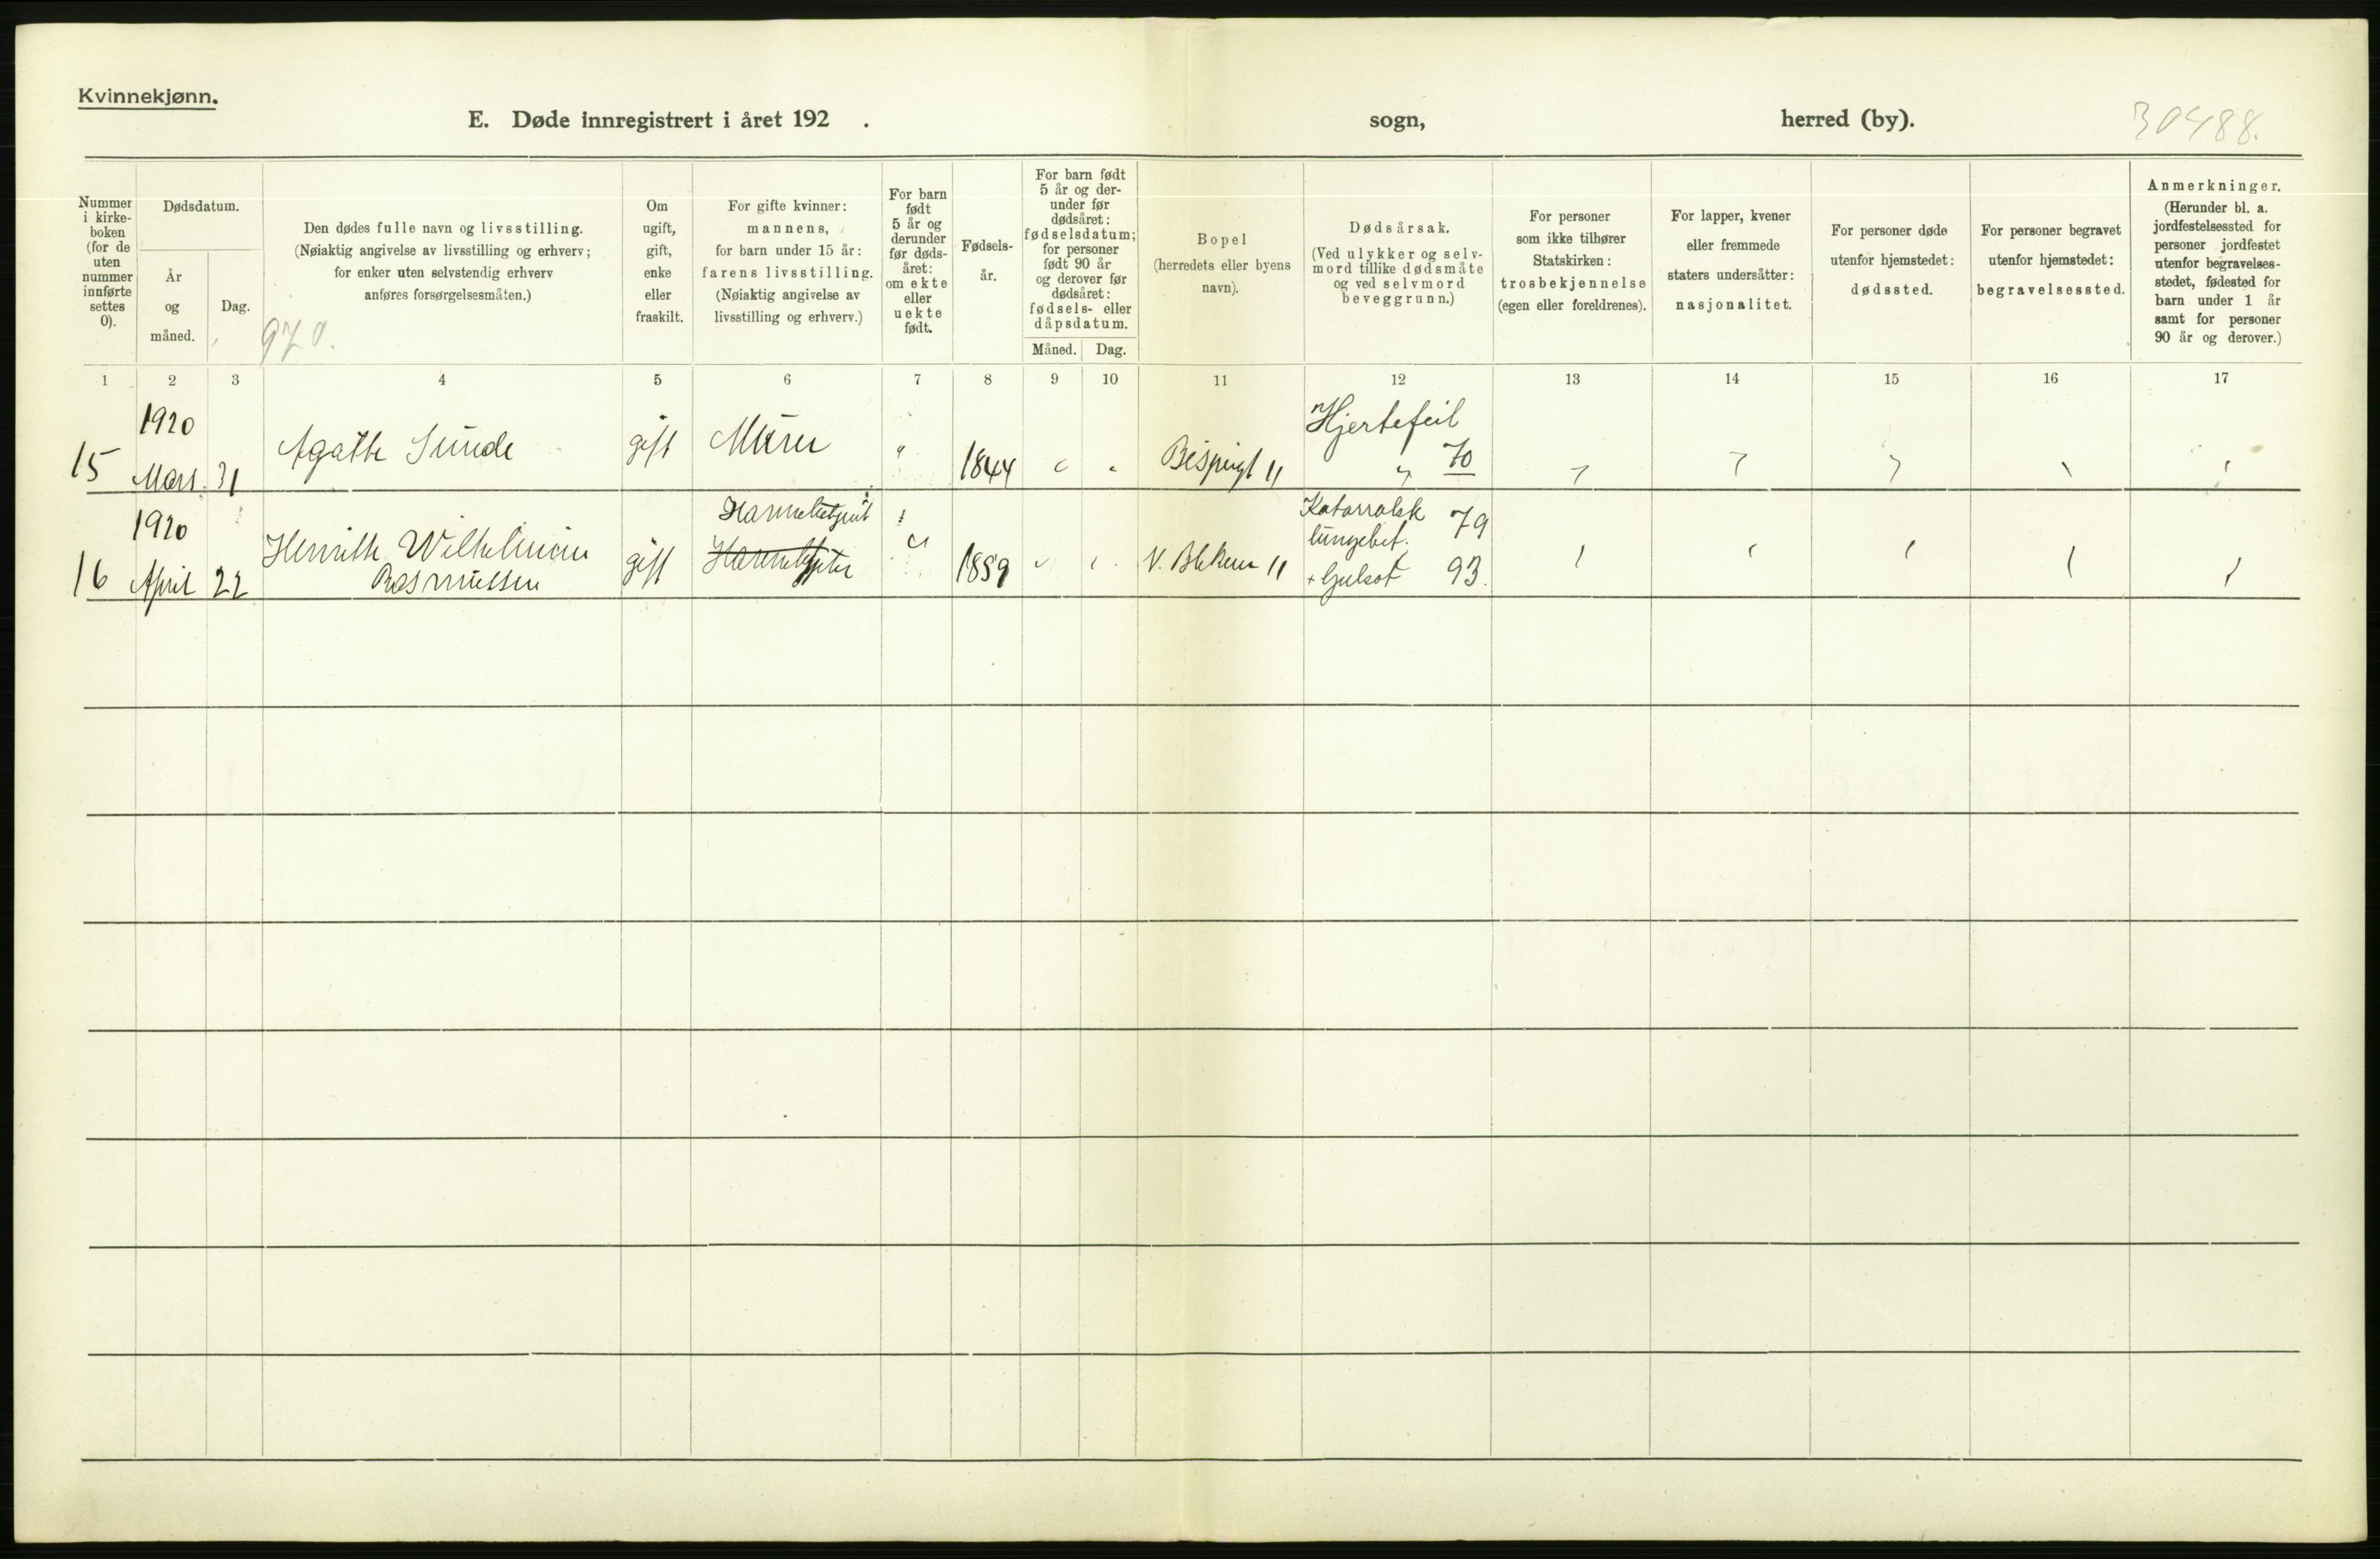 Kvinnekjønn.
E. Døde innregistrert i året 192 . sogn, herred (by).
30488.
Nummer i kirke-boken (for de uten nummer innførte settes 0).
Dødsdatum.
År og måned.
Dag.
Den dødes fulle navn og livsstilling.
(Nøiaktig angivelse av livsstilling og erhverv;
for enker uten selvstendig erhverv
anføres forsørgelsesmåten.)
970.
Om ugift, gift, enke eller fraskilt.
For gifte kvinner:
mannens,
for barn under 15 år:
farens livsstilling.
(Nøiaktig angivelse av
livsstilling og erhverv.)
For barn født 5 år og derunder før døds-året: om ekte eller uekte født.
Fødsels-år.
For barn født
5 år og der-
under før
dødsåret:
fødselsdatum;
for personer
født 90 år
og derover før
dødsåret:
fødsels- eller
dåpsdatum.
Måned. Dag.
Bopel
(herredets eller byens
navn).
Dødsårsak.
(Ved ulykker og selv-
mord tillike dødsmåte
og ved selvmord
beveggrunn.)
For personer
som ikke tilhører
Statskirken:
trosbekjennelse
(egen eller foreldrenes).
For lapper, kvener
eller fremmede
staters undersåtter:
nasjonalitet.
For personer døde
utenfor hjemstedet:
dødssted.
For personer begravet
utenfor hjemstedet:
begravelsessted.
Anmerkninger.
(Herunder bl. a.
jordfestelsessted for
personer jordfestet
utenfor begravelses-
stedet, fødested for
barn under 1 år
samt for personer
90 år og derover.)
1 2 3 4 5 6 7 8 9 10 11 12 13 14 15 16 17
1920 Hjertefeil
15 Mars. 31 Agathe Sunde gift Murer " 1844 " " 11 " 70
1920 Katarralsk 79
Henriette Wilhelmine lungebet.
16 April 22 Rasmussen gift " 1859 V. Bleken 11 + Gulsot 93.